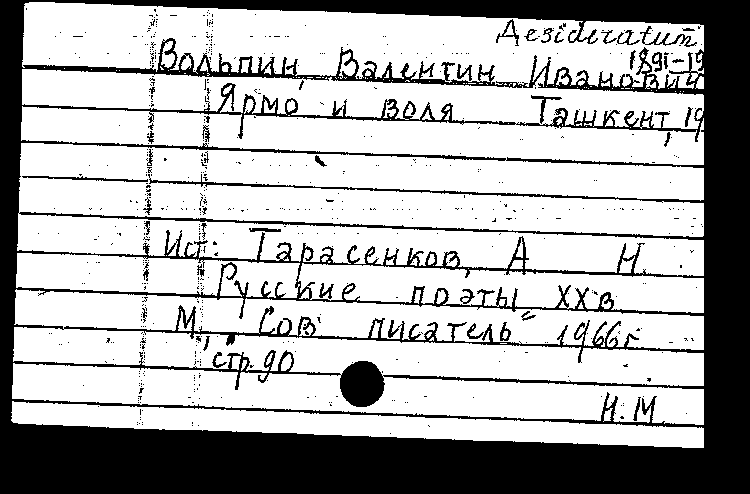 Desideratum
1891-19
Вольпин, Валентин Иванович
Ярмо и воля. Ташкент, 19
Ист: Тарасенков, А. Н.
Русские поэты XX в.
М., "Сов писатель" 1966 г
стр. 90
Н. М.